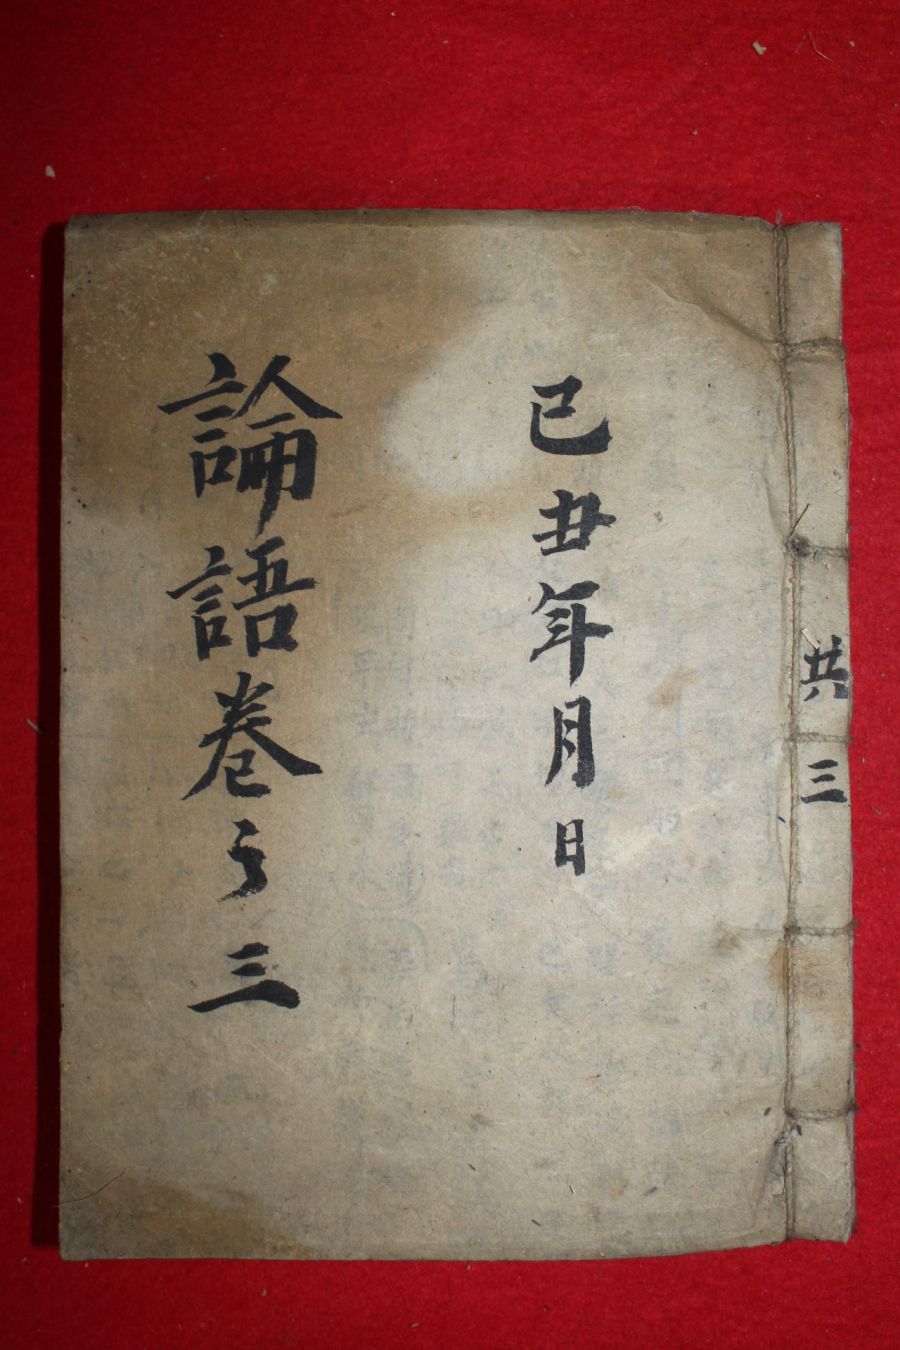 共三
己丑年月日
論語卷之三